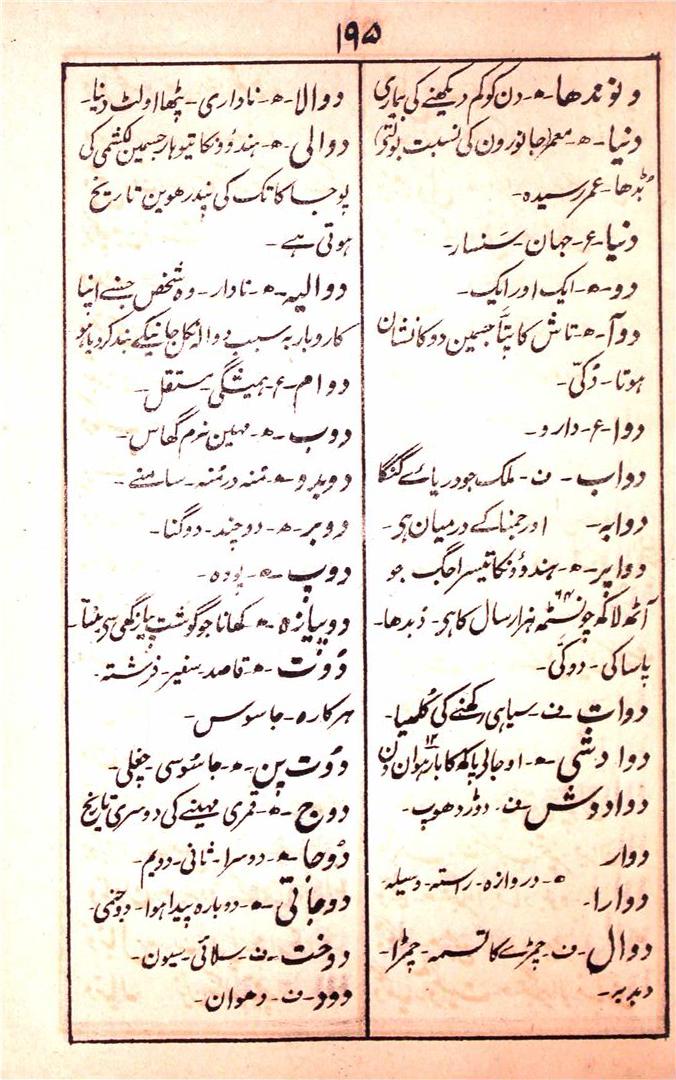 ۱۹۵
دنوندھا۔ھ۔دن کو کم دیکھنے کی بیماری
دنیا۔ھ۔معمر جانورون کی نسبت بولتے
بُڈھا۔عمر رسیدہ۔
دنیا۔ع۔جہان۔سنسار۔
دو۔ھ۔ایک اور ایک۔
دوآ۔ھ۔تاش کا پتّا جسمین دو کا نشان
ہوتا۔دُکّی۔
دوا۔ع۔دارو۔
دواب۔ف۔ملک جو دریائے گنگا
دوابہ۔ اور جمنا کے درمیان ہی۔
دواپر۔ھ۔ہندوُونکا تیسرا جگ جو
آٹھ لاکھ چونسٹھ ۶۴ ہزار سال کا ہی۔دُبدھا۔
پاسا کی۔دوکّی۔
دوات۔ف۔سیاہی رکھنے کی کُلھیا۔
دوادشی۔ھ۔اوجالی پاکھ کا بارہوان ۱۲ دن
دوادوش۔ف۔دوڑ دھوپ۔
دوار
دوارا۔ ھ۔دروازہ۔راستہ۔وسیلہ۔
دوال۔ف۔چمڑے کا تسمہ۔چمڑا۔
دوالا۔ھ۔ناداری۔پٹھا اولٹ دینا۔
دوالی۔ھ۔ہندوُونکا تیوہار جسمین لکشمی کی
پوجا کاتک کی پندرھوین تاریخ
ہوتی ہے۔
دوالیہ۔ھ۔نادار۔وہ شخص جسنے اپنا
کاروبار بہ سبب دوالہ نکل جانیکے بند کردیا ہو
دوام۔ع۔ہمیشگی۔مستقل۔
دوب۔ھ۔مہین نرم گھاس۔
دوبدو۔ھ۔مُنہ در مُنہ۔سامنے۔
دوبر۔ھ۔دوچند۔دوگنا۔
دوپ۔ھ۔پودہ۔
دوپیازہ۔ھ۔کھانا جو گوشت پیاز گھی سی بنتا۔
دُوت۔ھ۔قاصد۔سفیر۔فرشتہ۔
ہرکارہ۔جاسوس۔
دوُت پن۔ھ۔جاسُوسی۔چغلی۔
دوج۔ھ۔قمری مہینے کی دوسری تاریخ
دُوجا۔ھ۔دوسرا۔ثانی۔دویم۔
دوجاتی۔ھ۔دوبارہ پیدا ہوا۔دوجنمی۔
دوخت۔ف۔سلائی۔سیون۔
دود۔ف۔دھوان۔